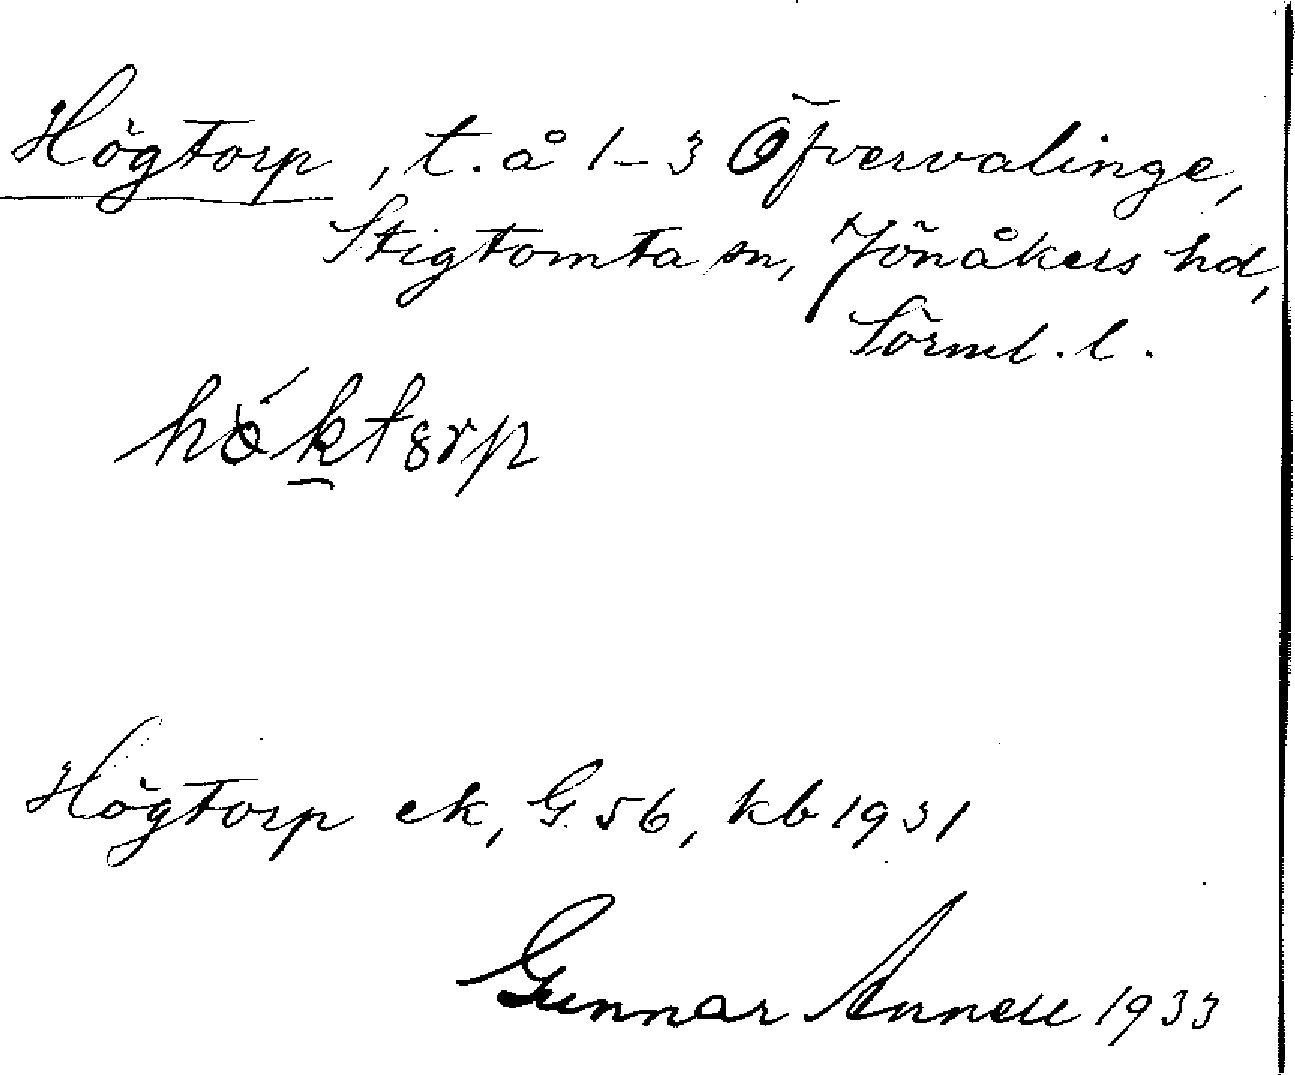 Högtorp, t. å 1-3 Öfvervalinge,
Stigtomta sn, Jönåkers hd,
Sörml. l.
Högtorp ek, G. 56, kb 1931
Gunnar Annell 1933